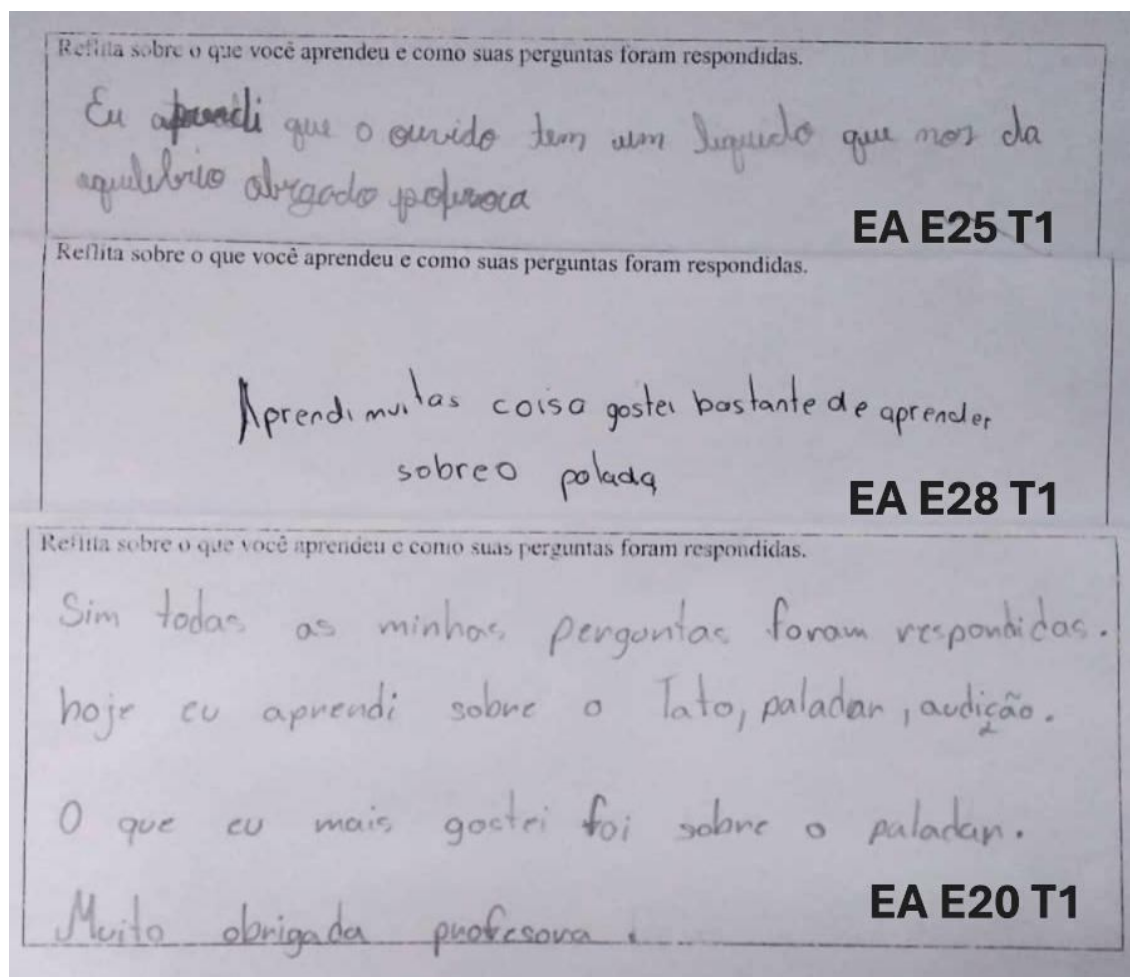 Reflita sobre o que você aprendeu e como suas perguntas foram respondidas.
Eu aprendi que o ouvido tem um liquido que nos da
aquilibrio abrgado
EA E25 T1
Reflita sobre o que você aprendeu e como suas perguntas foram respondidas.
Aprendi muitas coisa gostei bastante de aprender
sobre o polada
EA E28 T1
Reflita sobre o que você aprendeu e como suas perguntas foram respondidas.
Sim todas as minhas perguntas foram respondidas.
hoje eu aprendi sobre o Tato, paladar, audição.
O que eu mais gostei foi sobre o paladar.
EA E20 T1
Muito obrigada profesora.